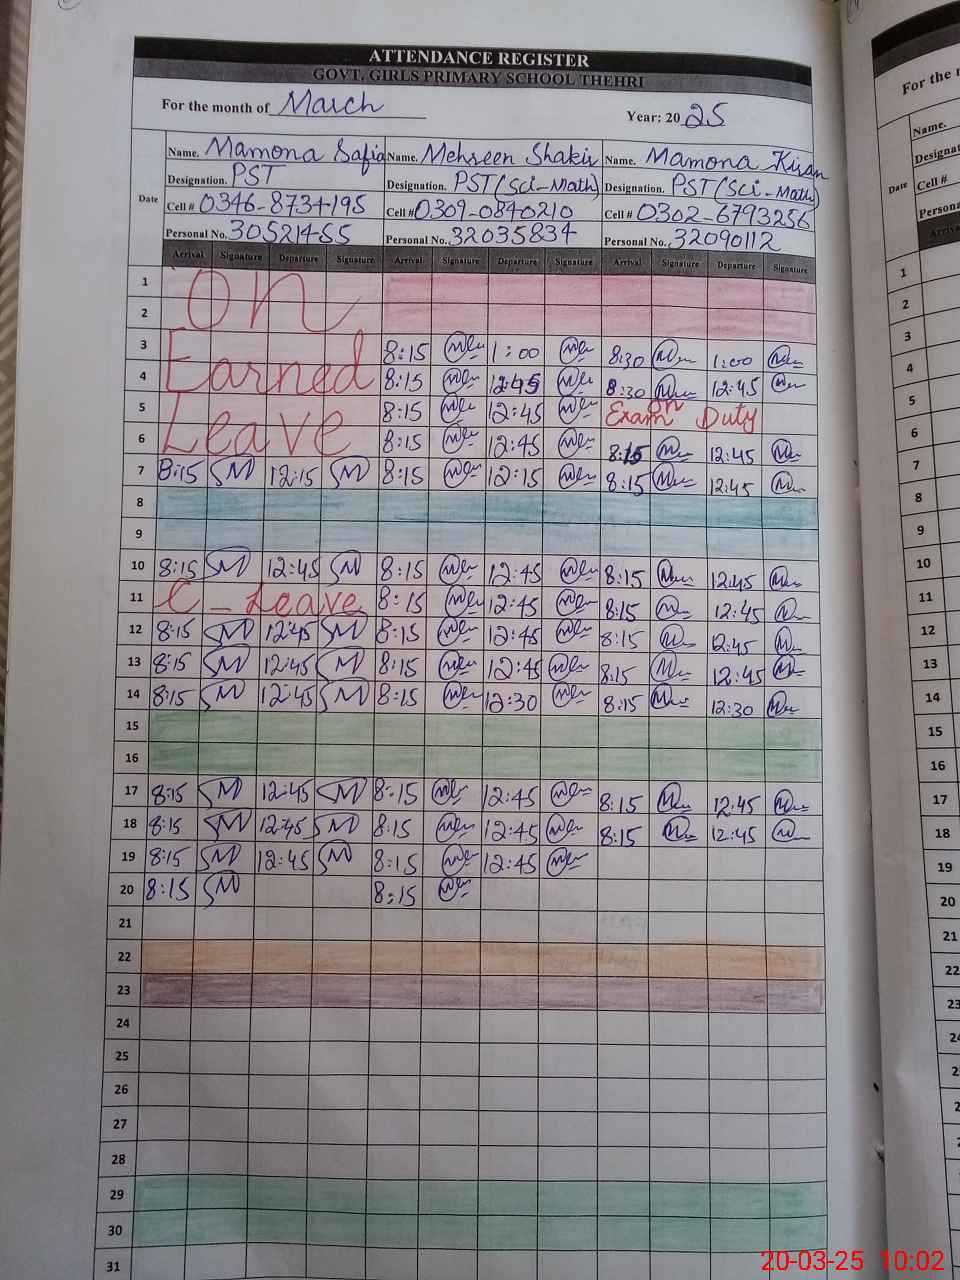 ATTENDANCE REGISTER
GOVT. GIRLS PRIMARY SCHOOL THEHRI
For the month of March Year: 2025
Name. Mamona Safia Name. Mehreen Shakir Name. Mamona Kiran
Designation. PST Designation. PST (Sci-Math) Designation. PST (Sci-Math)
Date
Cell # 0346-8734195 Cell # 0309-0840210 Cell # 0302-6793256
Personal No. 30521455 Personal No. 32035834 Personal No. 32090112
Arrival Signature Departure Signature Arrival Signature Departure Signature Arrival Signature Departure Signature
1 On
2
3 Earned 8:15 1:00 8:30 1:00
4 8:15 12:45 8:30 12:45
5 Leave 8:15 12:45 Exam on Duty
6 8:15 12:45 8:15 12:45
7 8:15 SM 12:15 SM 8:15 12:15 8:15 12:45
8
9
10 8:15 SM 12:45 SM 8:15 12:45 8:15 12:45
11 C-Leave 8:15 12:45 8:15 12:45
12 8:15 SM 12:45 SM 8:15 12:45 8:15 12:45
13 8:15 SM 12:45 SM 8:15 12:45 8:15 12:45
14 8:15 SM 12:45 SM 8:15 12:30 8:15 12:30
15
16
17 8:15 SM 12:45 SM 8:15 12:45 8:15 12:45
18 8:15 SM 12:45 SM 8:15 12:45 8:15 12:45
19 8:15 SM 12:45 SM 8:15 12:45
20 8:15 SM 8:15
21
22
23
24
25
26
27
28
29
30
31
For the
Name.
Designat
Date
Cell #
Persona
1
2
3
4
5
6
7
8
9
10
11
12
13
14
15
16
17
18
19
20
21
22
23
20-03-25 10:02